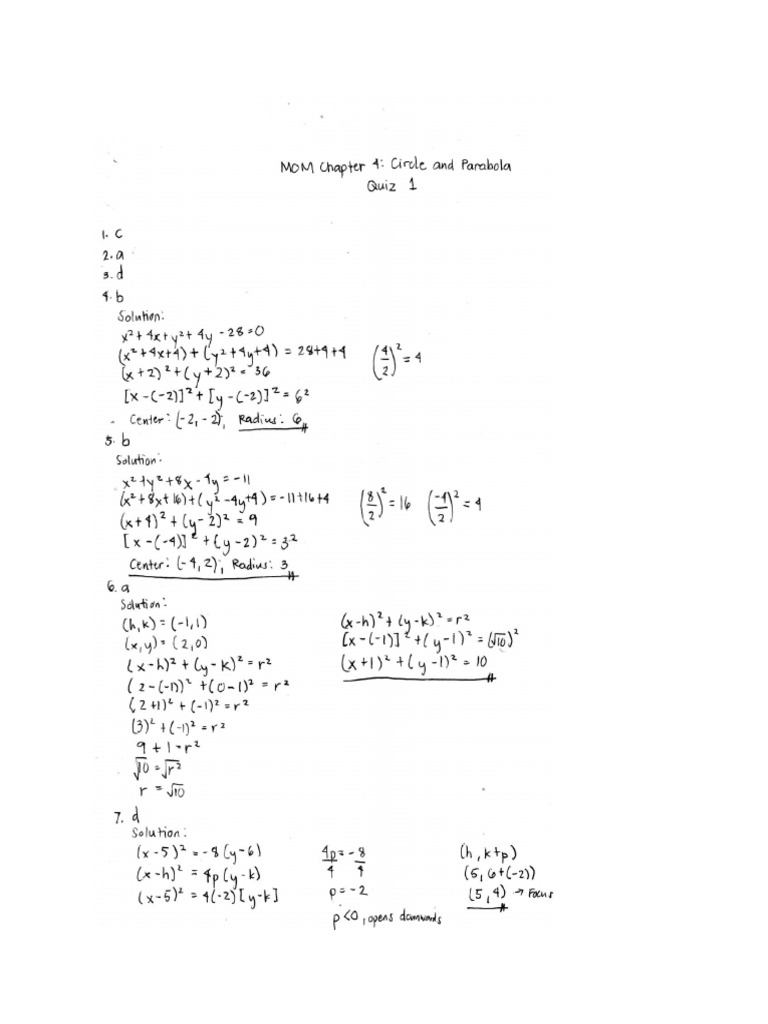 MOM Chapter 4: Circle and Parabola
Quiz 1
1. c
2. a
3. d
4. b
Solution:
x² + 4x + y² + 4y - 28 = 0
(x² + 4x + 4) + (y² + 4y + 4) = 28 + 4 + 4    (4/2)² = 4
(x + 2)² + (y + 2)² = 36
[x - (-2)]² + [y - (-2)]² = 6²
Center: (-2, -2), Radius: 6
5. b
Solution:
x² + y² + 8x - 4y = -11
(x² + 8x + 16) + (y² - 4y + 4) = -11 + 16 + 4    (8/2)² = 16    (-4/2)² = 4
(x + 4)² + (y - 2)² = 9
[x - (-4)]² + (y - 2)² = 3²
Center: (-4, 2), Radius: 3
6. a
Solution:
(h, k) = (-1, 1)
(x, y) = (2, 0)
(x - h)² + (y - k)² = r²
(2 - (-1))² + (0 - 1)² = r²
(2 + 1)² + (-1)² = r²
(3)² + (-1)² = r²
9 + 1 = r²
√10 = √r²
r = √10
(x - h)² + (y - k)² = r²
[x - (-1)]² + (y - 1)² = (√10)²
(x + 1)² + (y - 1)² = 10
7. d
Solution:
(x - 5)² = -8(y - 6)
(x - h)² = 4p(y - k)
(x - 5)² = 4(-2)[y - k]
4p/4 = -8/4
p = -2
p < 0, opens downwards
(h, k + p)
(5, 6 + (-2))
(5, 4) → Focus